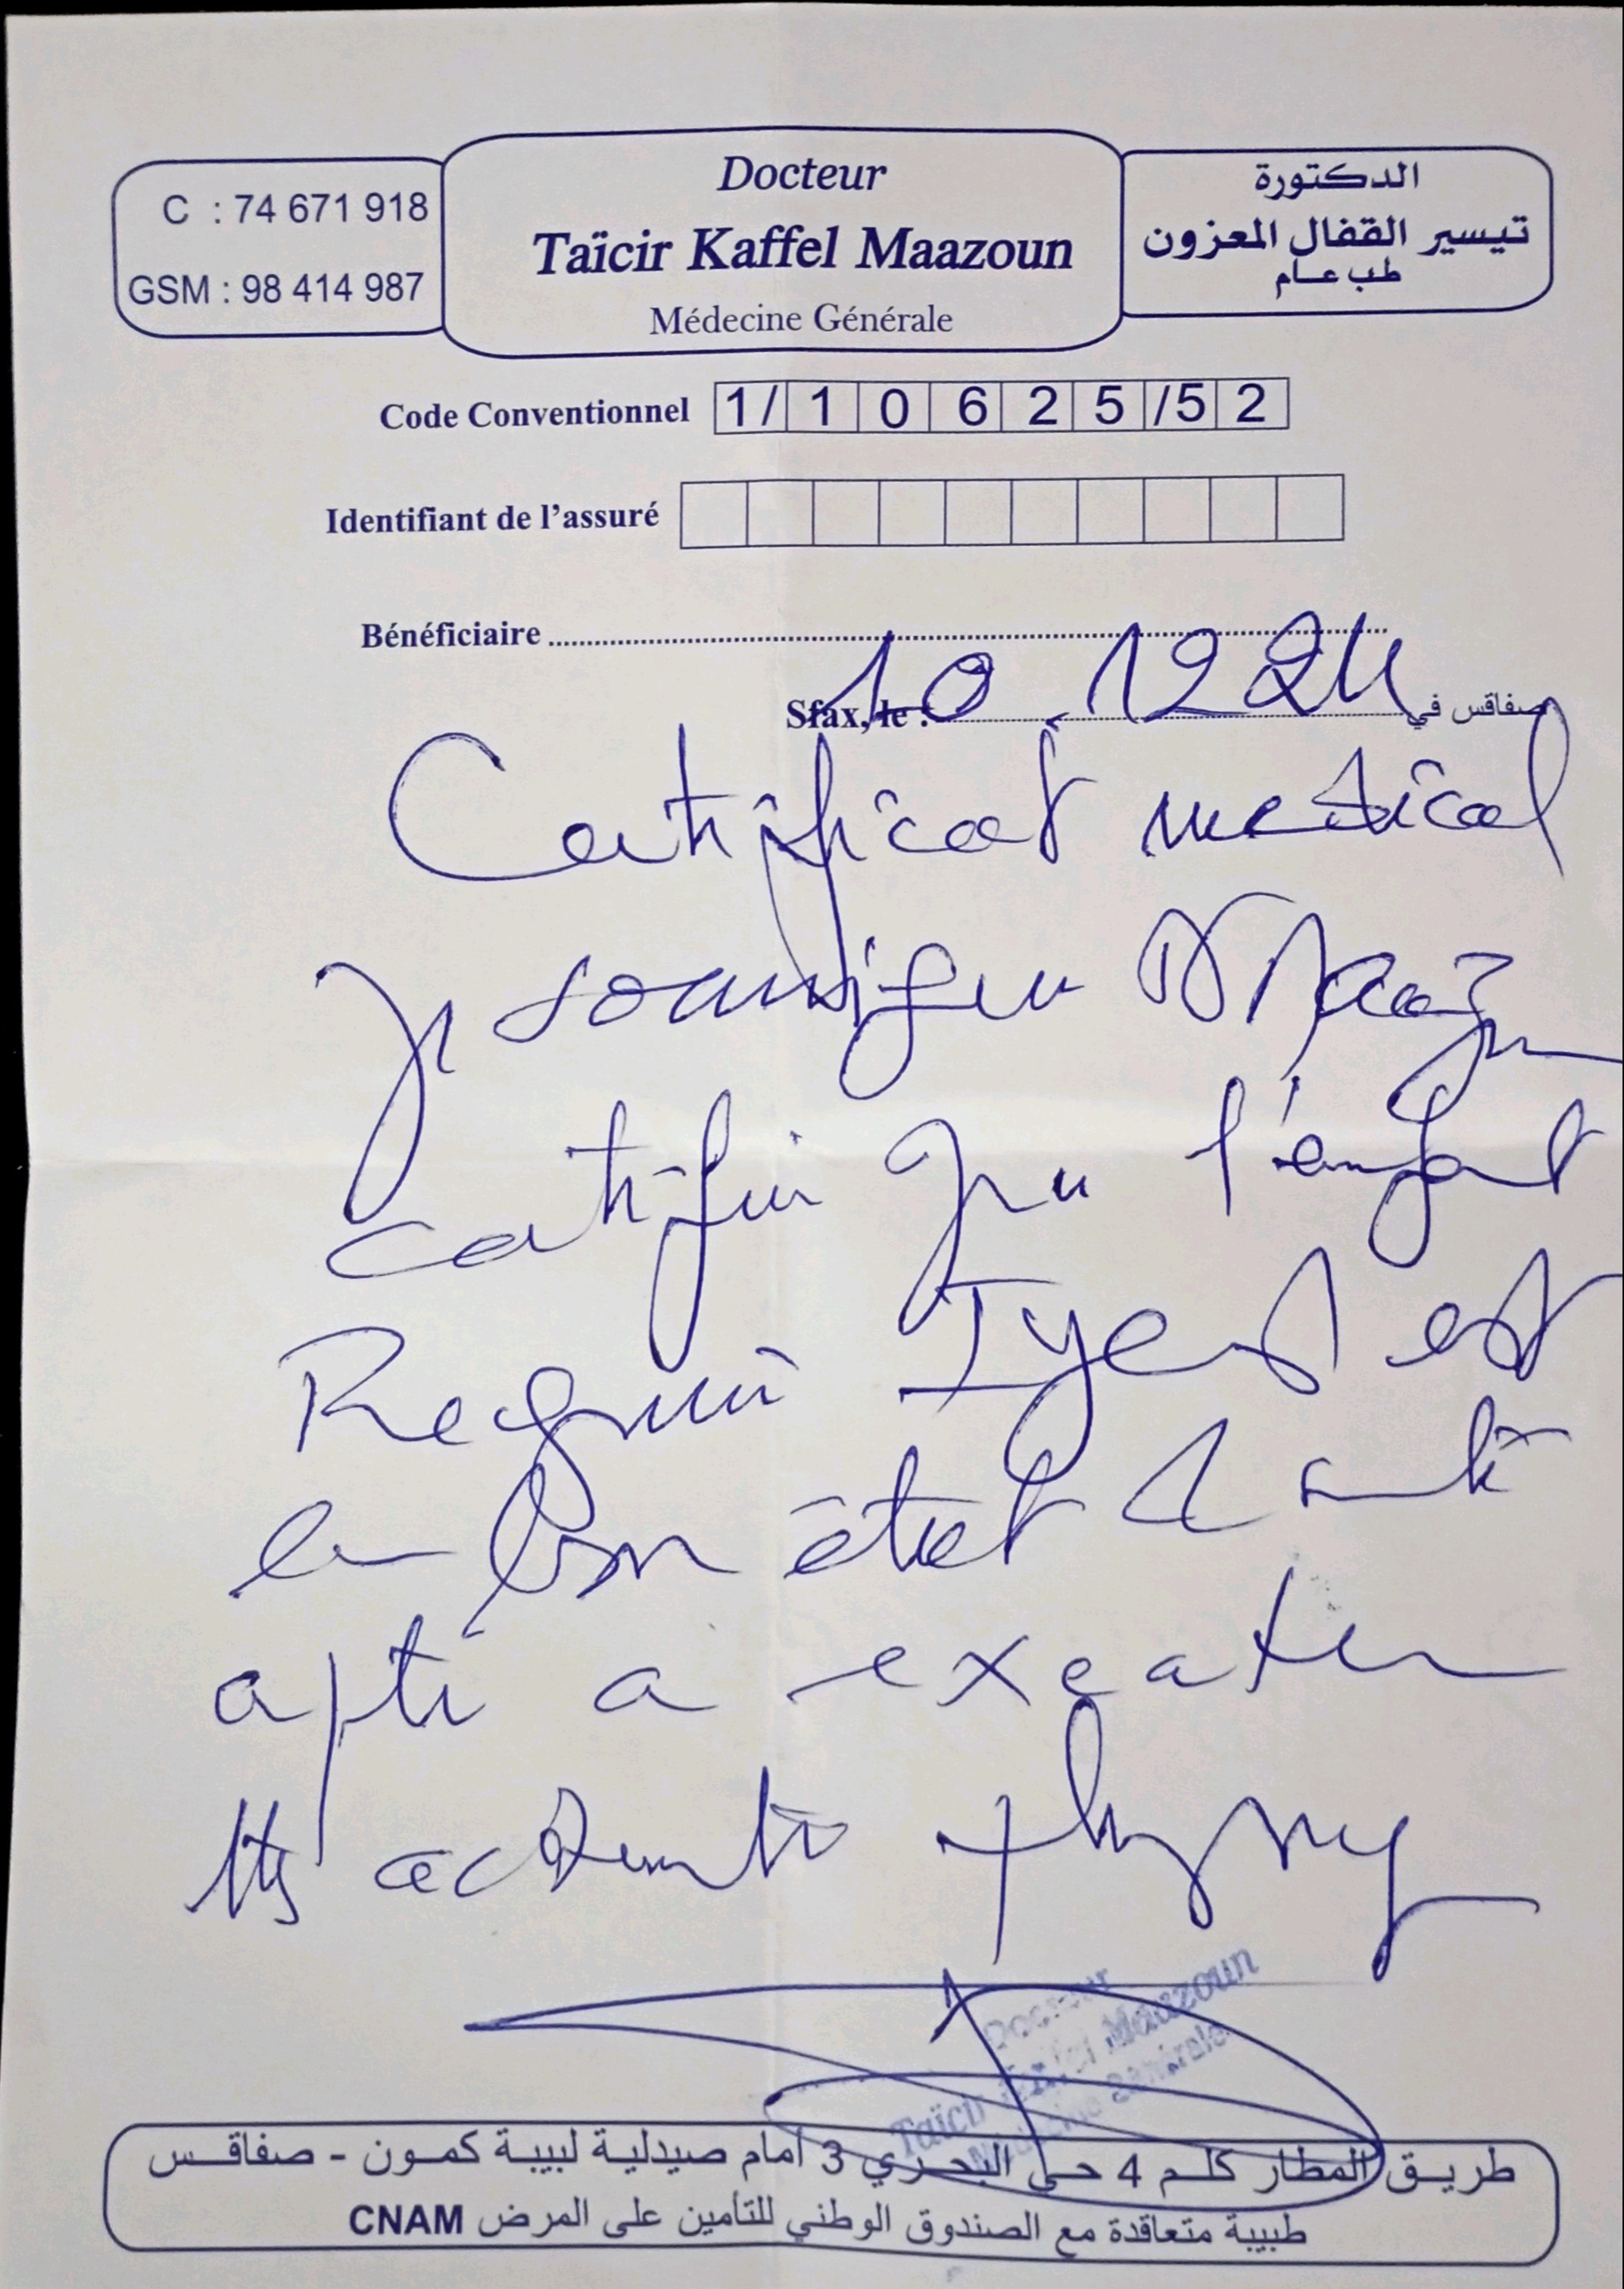 C : 74 671 918
GSM : 98 414 987
Docteur
Taïcir Kaffel Maazoun
Médecine Générale
الدكتورة
تيسير القفال المعزون
طب عام
Code Conventionnel 1/10625/52
Identifiant de l'assuré
Bénéficiaire
Sfax, le : 10 12 24 صفاقس في
Certificat medical
Je soussigné Dr Maazoun
certifie que l'enfant
Iyed est
en bon état de santé
apte a executer
physiq
Docteur
Taïcir Kaffel Maazoun
Médecine Générale
طريق المطار كلم 4 حي البحري 3 أمام صيدلية لبيبة كمون - صفاقس
طبيبة متعاقدة مع الصندوق الوطني للتأمين على المرض CNAM